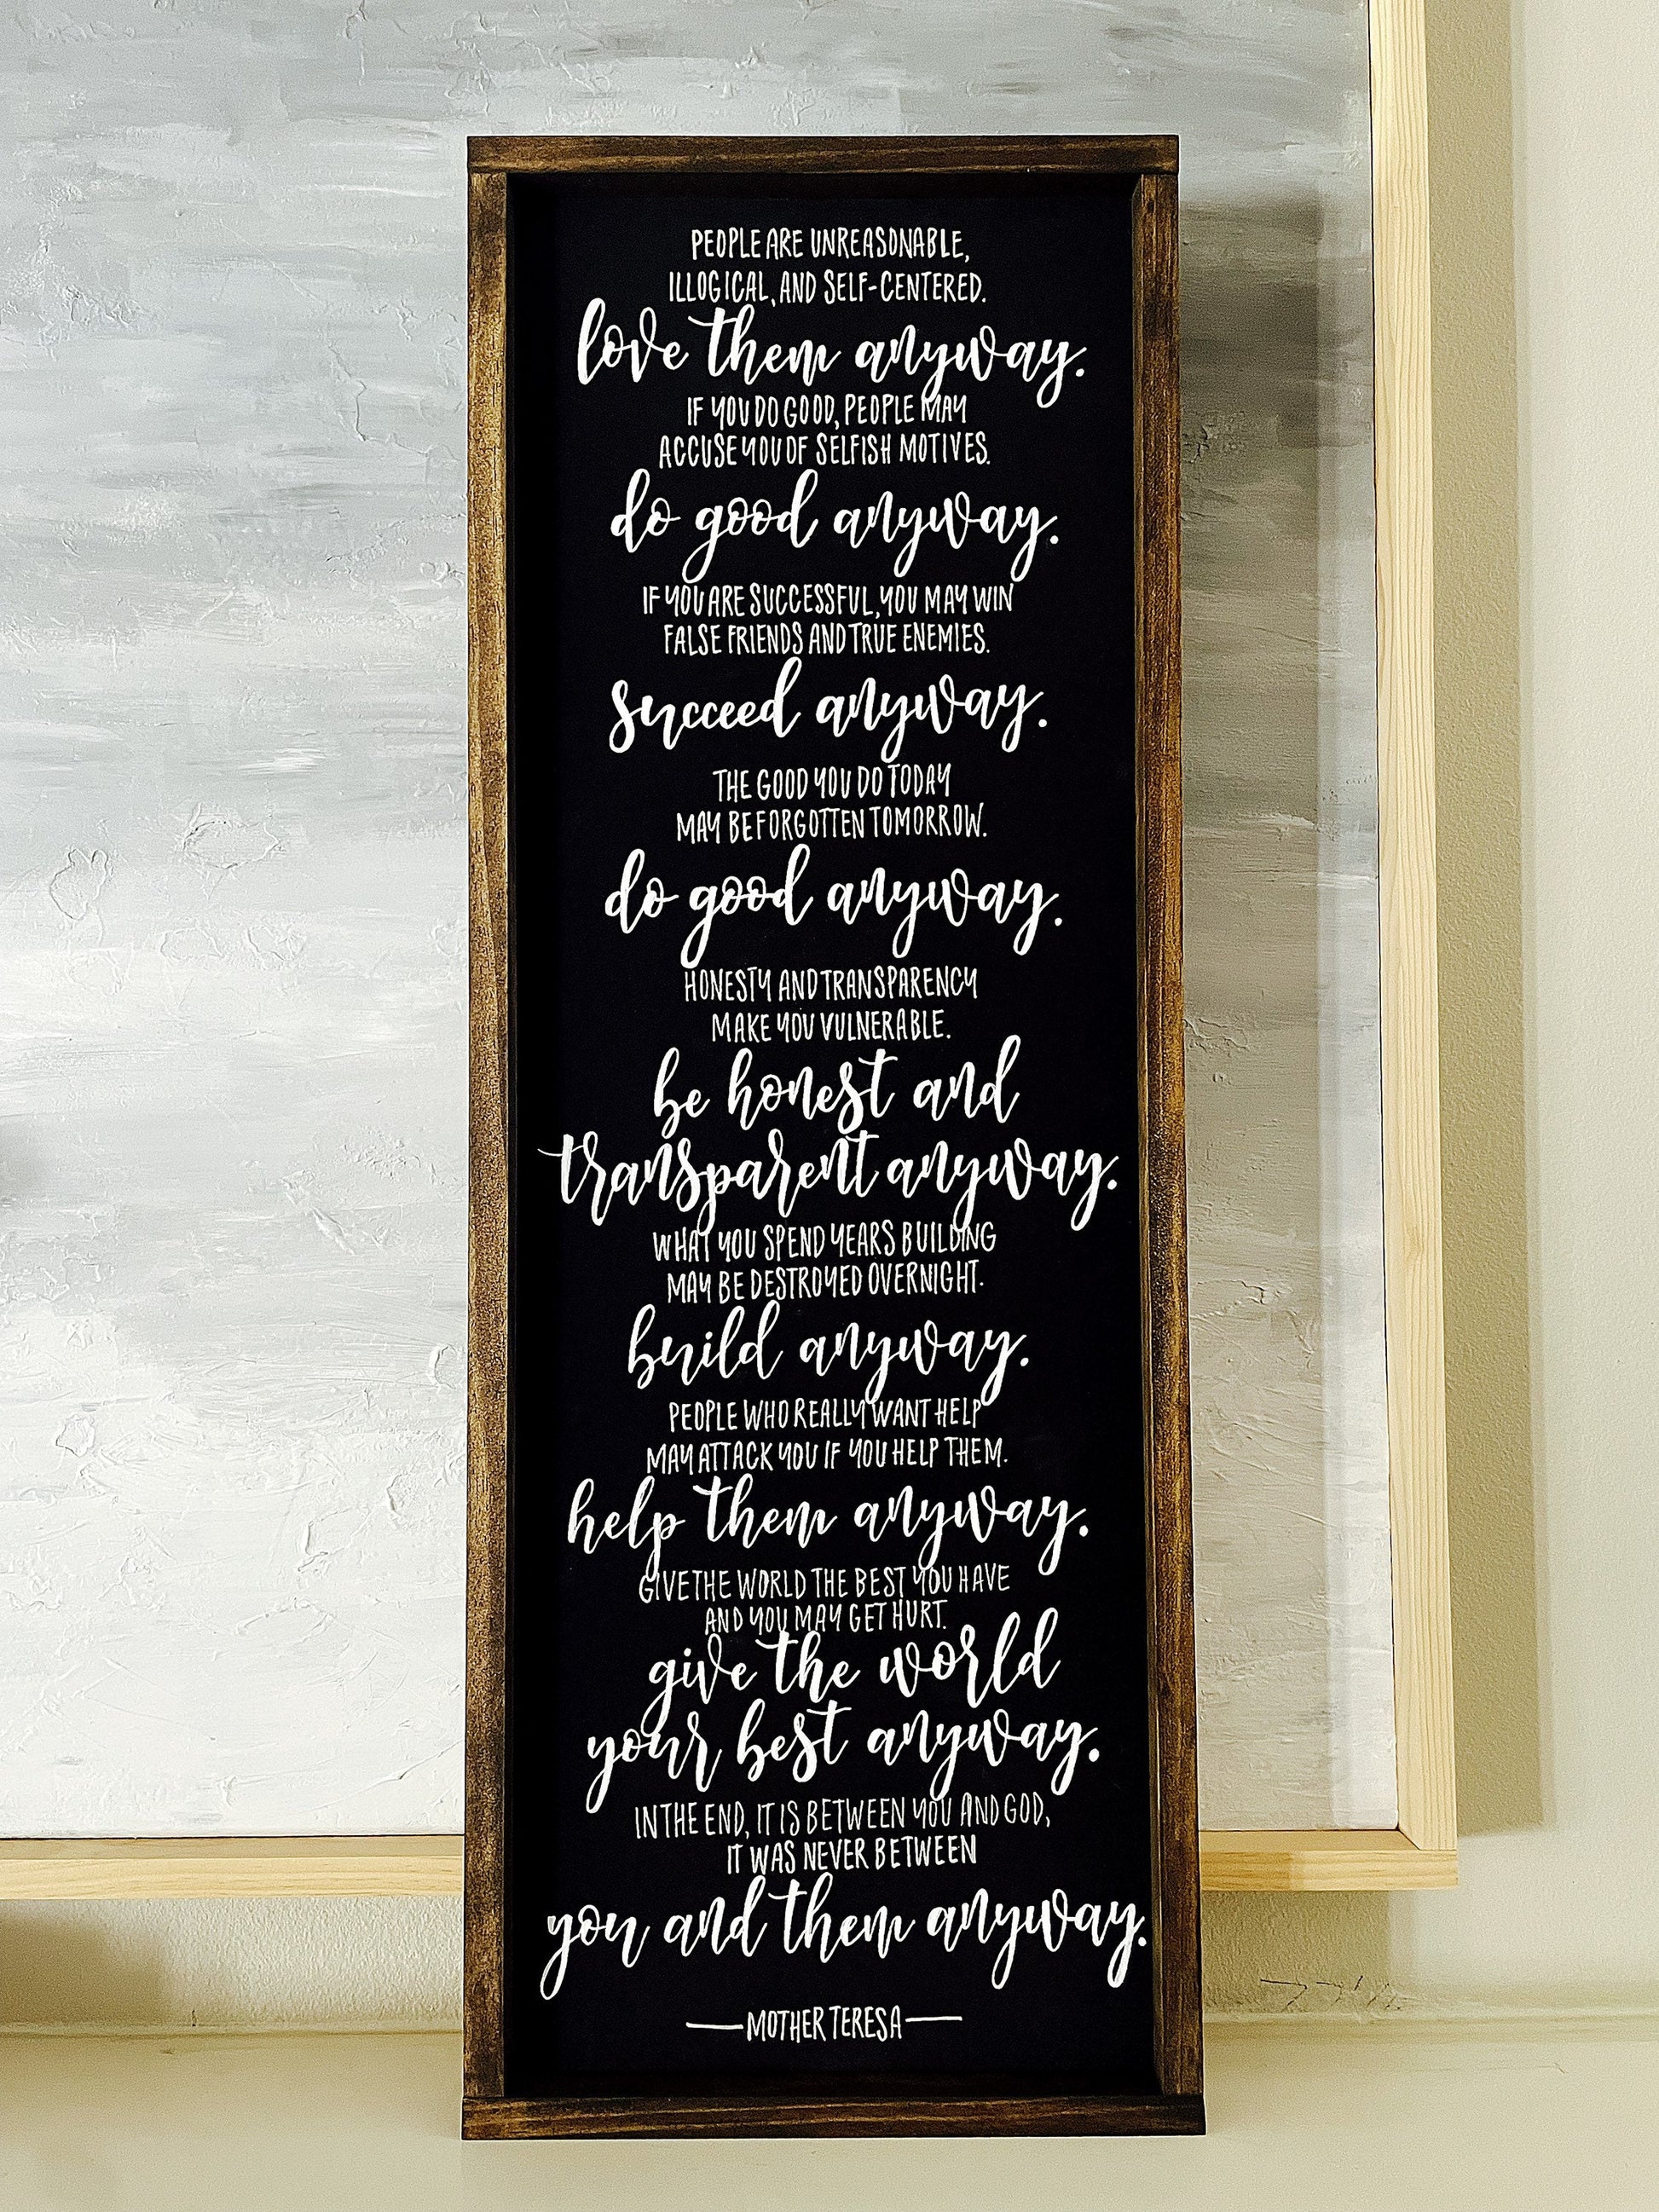 PEOPLE ARE UNREASONABLE,
ILLOGICAL, AND SELF-CENTERED.
love them anyway.
IF YOU DO GOOD, PEOPLE MAY
ACCUSE YOU OF SELFISH MOTIVES.
do good anyway.
IF YOU ARE SUCCESSFUL, YOU MAY WIN
FALSE FRIENDS AND TRUE ENEMIES.
succeed anyway.
THE GOOD YOU DO TODAY
MAY BE FORGOTTEN TOMORROW.
do good anyway.
HONESTY AND TRANSPARENCY
MAKE YOU VULNERABLE.
be honest and
transparent anyway.
WHAT YOU SPEND YEARS BUILDING
MAY BE DESTROYED OVERNIGHT.
build anyway.
PEOPLE WHO REALLY WANT HELP
MAY ATTACK YOU IF YOU HELP THEM.
help them anyway.
GIVE THE WORLD THE BEST YOU HAVE
AND YOU MAY GET HURT.
give the world
your best anyway.
IN THE END, IT IS BETWEEN YOU AND GOD,
IT WAS NEVER BETWEEN
you and them anyway.
—MOTHER TERESA—